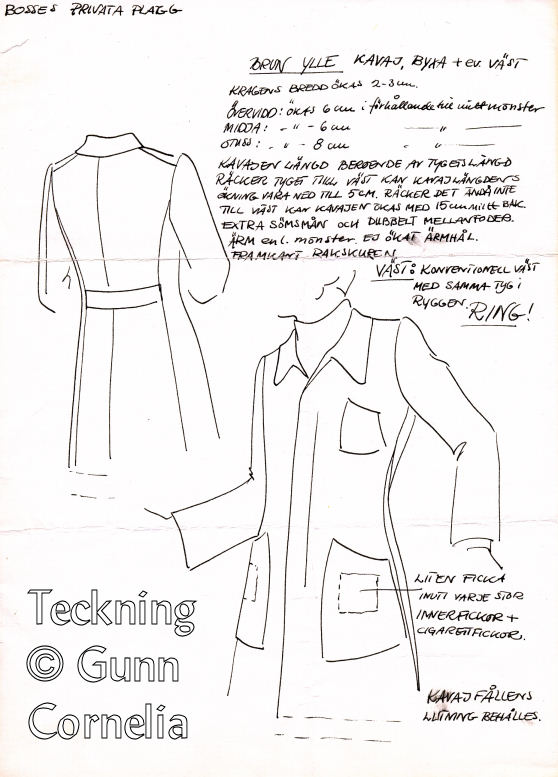 BOSSES PRIVATA PLAGG
BRUN YLLE KAVAJ, BYXA + ev. VÄST
KRAGENS BREDD ÖKAS 2-3 cm.
ÖVERVIDD: ÖKAS 6 cm i förhållande till mitt mönster
MIDJA: - " - 6 cm — " —
STUSS: - " - 8 cm - " —
KAVAJEN LÄNGD BEROENDE AV TYGETS LÄNGD
RÄCKER TYGET TILL VÄST KAN KAVAJLÄNGDENS
ÖKNING VARA NED TILL 5 cm. RÄCKER DET ÄNDÅ INTE
TILL VÄST KAN KAVAJEN ÖKAS MED 15 cm mitt BAK.
EXTRA SÖMSMÅN OCH DUBBELT MELLANFODER.
ÄRM enl. mönster. EJ ÖKAT ÄRMHÅL.
FRAMKANT RAKSKUREN
VÄST: KONVENTIONELL VÄST
MED SAMMA TYG I
RYGGEN. RING!
LITEN FICKA
INUTI VARJE STOR
INNERFICKOR +
CIGARETTFICKOR.
KAVAJFÅLLENS
LUTNING BEHÅLLES.
Teckning
© Gunn
Cornelia